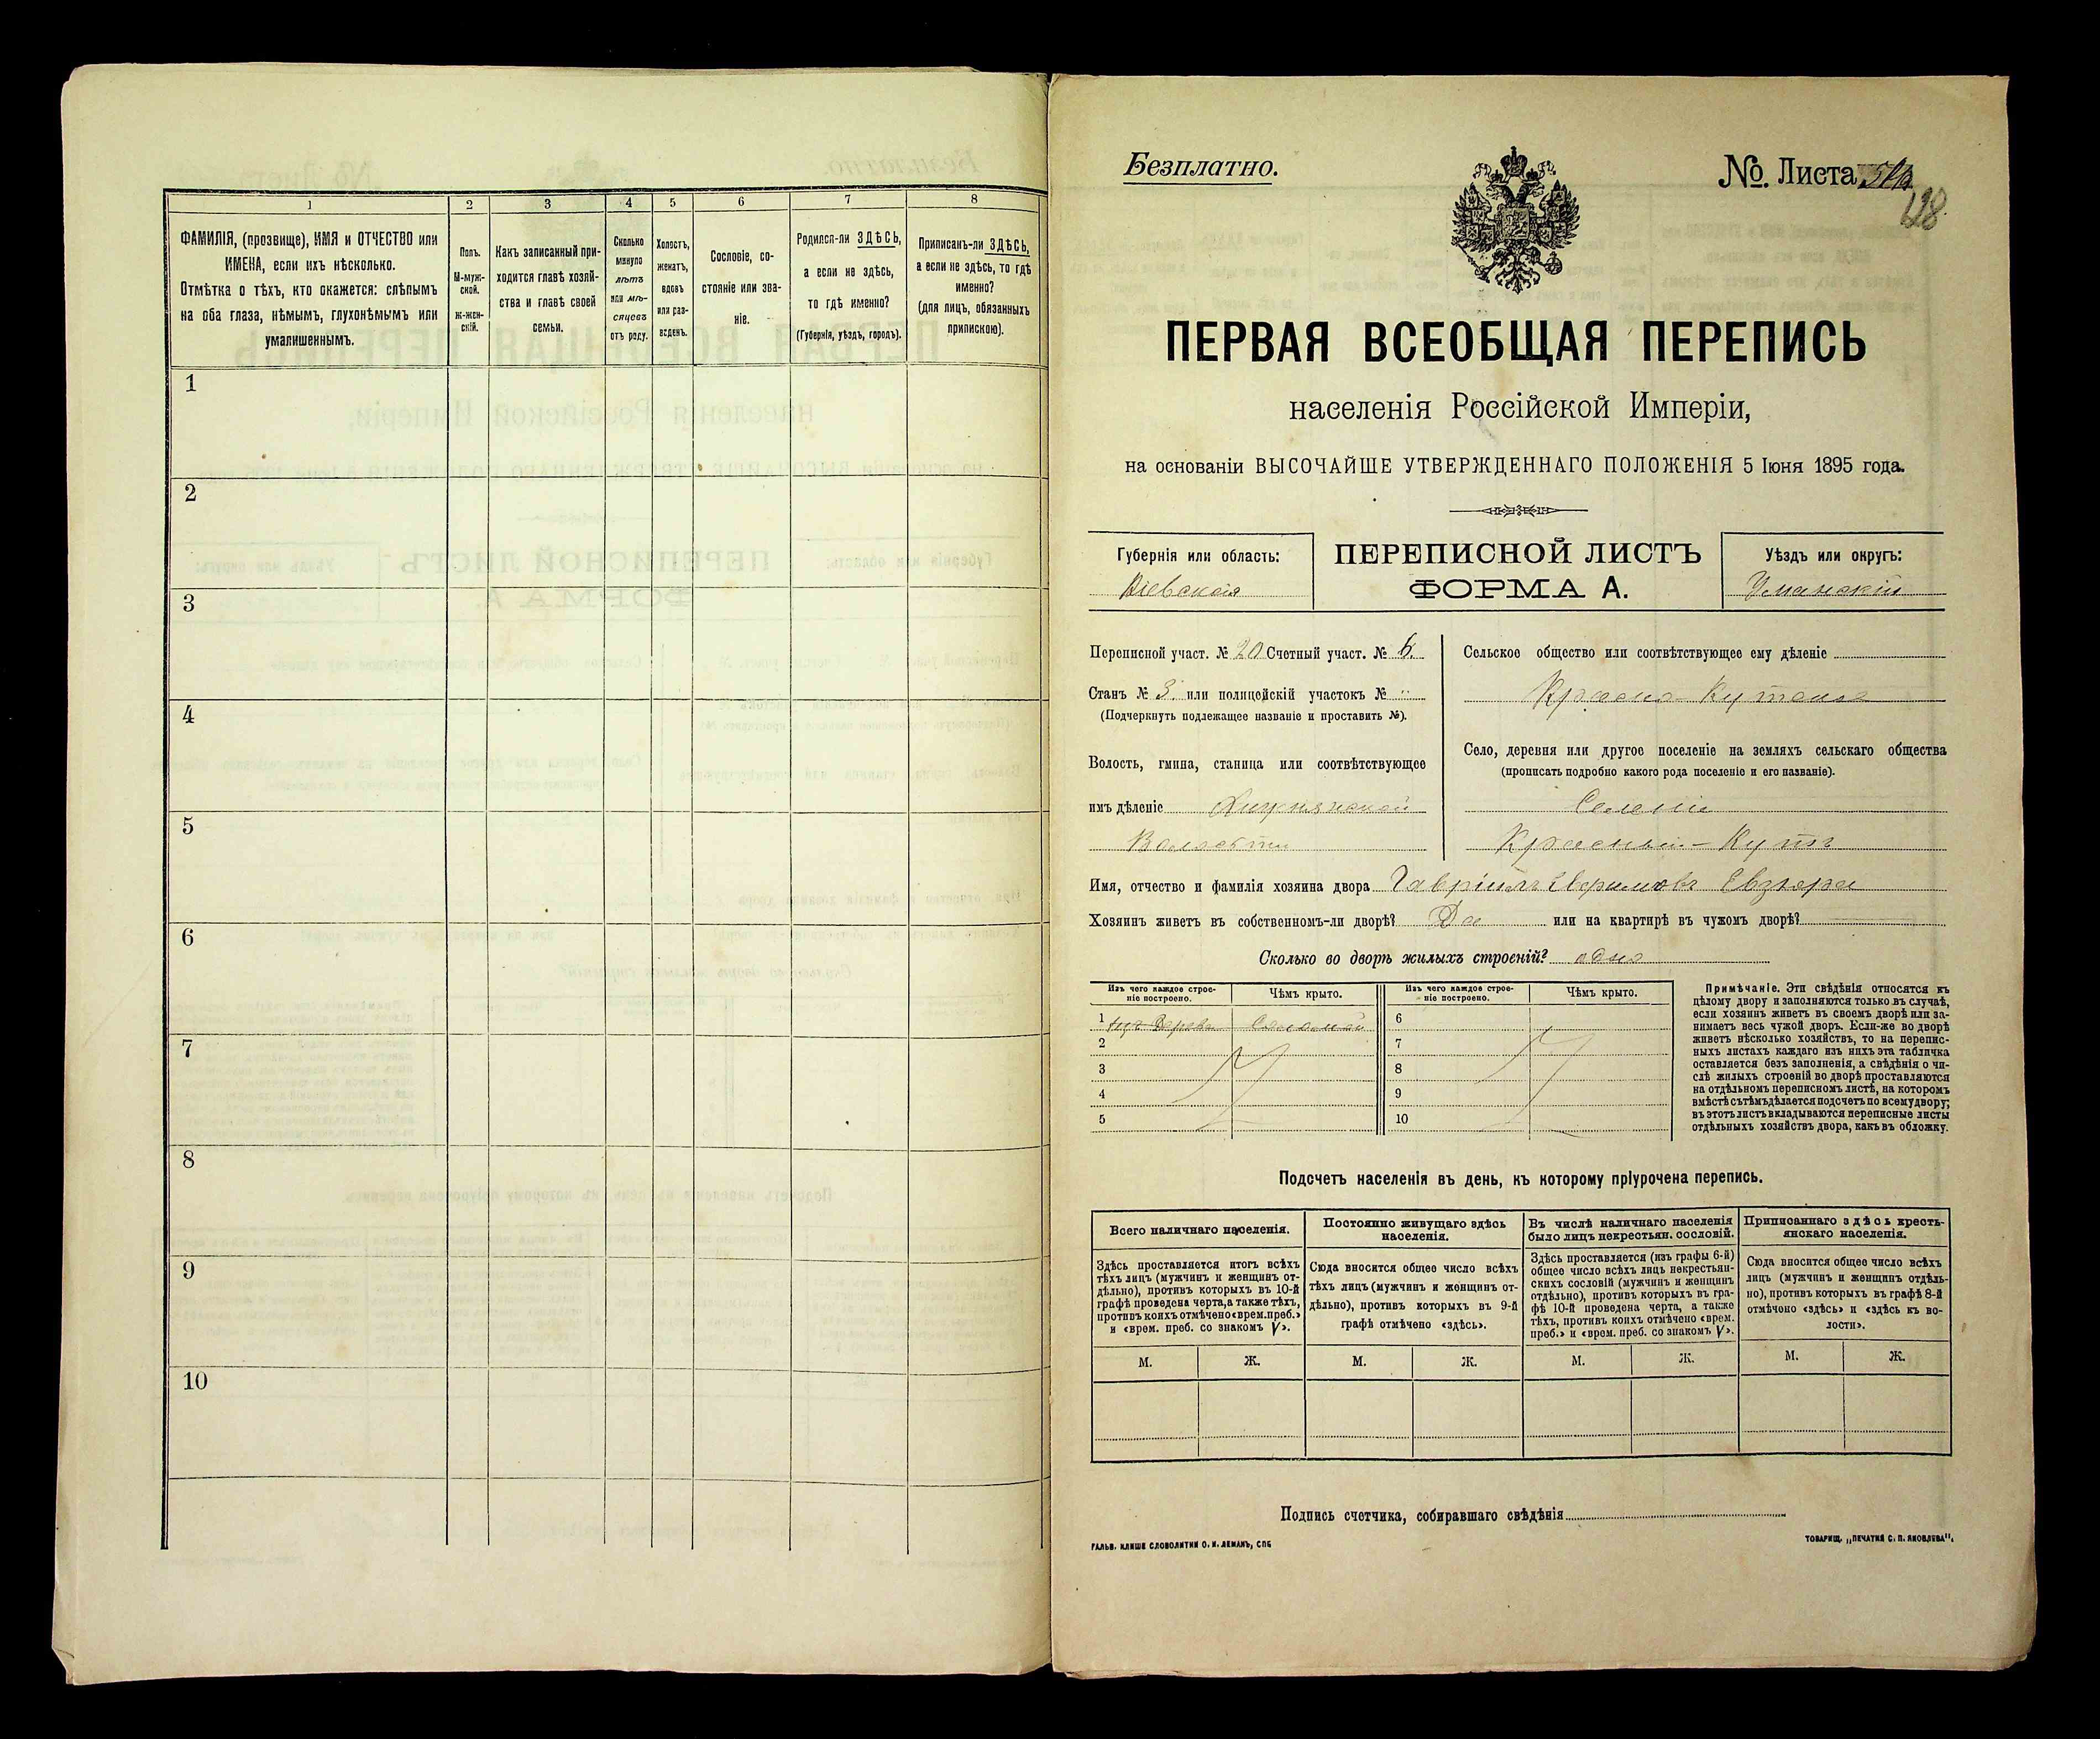 1
2
3
4
5
6
7
8
ФАМИЛІЯ, (прозвище), ИМЯ и ОТЧЕСТВО или
ИМЕНА, если ихъ нѣсколько.
Отмѣтка о тѣхъ, кто окажется: слѣпымъ
на оба глаза, нѣмымъ, глухонѣмымъ или
умалишеннымъ.
Полъ.
М-муж-
ской.
Ж-жен-
скій.
Какъ записанный при-
ходится главѣ хозяй-
ства и главѣ своей
семьи.
Сколько
минуло
лѣтъ
или мѣ-
сяцевъ
отъ роду.
Холостъ,
женатъ,
вдовъ
или раз-
веденъ.
Сословіе, со-
стояніе или зва-
ніе.
Родился-ли ЗДѢСЬ,
а если не здѣсь,
то гдѣ именно?
(Губернія, уѣздъ, городъ).
Приписанъ-ли ЗДѢСЬ,
а если не здѣсь, то гдѣ
именно?
(для лицъ, обязанныхъ
припискою).
1
2
3
4
5
6
7
8
9
10
Безплатно.
№. Листа
128
ПЕРВАЯ ВСЕОБЩАЯ ПЕРЕПИСЬ
населенія Россійской Имперіи,
на основаніи ВЫСОЧАЙШЕ УТВЕРЖДЕННАГО ПОЛОЖЕНІЯ 5 Іюня 1895 года.
Губернія или область:
Кіевская
ПЕРЕПИСНОЙ ЛИСТЪ
ФОРМА А.
Уѣздъ или округъ:
Уманскій
Переписной участ. № 20 Счетный участ. № 6.
Станъ № 3. или полицейскій участокъ № "
(Подчеркнуть подлежащее названіе и проставить №).
Волость, гмина, станица или соотвѣтствующее
имъ дѣленіе Хижнянской
Волости
Сельское общество или соотвѣтствующее ему дѣленіе
Красно-Кутское
Село, деревня или другое поселеніе на земляхъ сельскаго общества
(прописать подробно какого рода поселеніе и его названіе).
Селеніи
Красный-Кутъ
Имя, отчество и фамилія хозяина двора Гавріилъ
Хозяинъ живетъ въ собственномъ-ли дворѣ? Да или на квартирѣ въ чужомъ дворѣ?
Сколько во дворѣ жилыхъ строеній? одно
Изъ чего каждое строе-
ніе построено.
Чѣмъ крыто.
Изъ чего каждое строе-
ніе построено.
Чѣмъ крыто.
1 изъ Дерева Соломой
2
3
4
5
6
7
8
9
10
Примѣчаніе. Эти свѣдѣнія относятся къ
цѣлому двору и заполняются только въ случаѣ,
если хозяинъ живетъ въ своемъ дворѣ или за-
нимаетъ весь чужой дворъ. Если-же во дворѣ
живетъ нѣсколько хозяйствъ, то на перепис-
ныхъ листахъ каждаго изъ нихъ эта табличка
оставляется безъ заполненія, а свѣдѣнія о чи-
слѣ жилыхъ строеній во дворѣ проставляются
на отдѣльномъ переписномъ листѣ, на которомъ
вмѣстѣ съ тѣмъ дѣлается подсчетъ по всему двору;
въ этотъ листъ вкладываются переписные листы
отдѣльныхъ хозяйствъ двора, какъ въ обложку.
Подсчетъ населенія въ день, къ которому пріурочена перепись.
Всего наличнаго населенія.
Здѣсь проставляется итогъ всѣхъ
тѣхъ лицъ (мужчинъ и женщинъ от-
дѣльно), противъ которыхъ въ 10-й
графѣ проведена черта, а также тѣхъ,
противъ коихъ отмѣчено «врем. преб.»
и «врем. преб. со знакомъ V».
Постоянно живущаго здѣсь
населенія.
Сюда вносится общее число всѣхъ
тѣхъ лицъ (мужчинъ и женщинъ от-
дѣльно), противъ которыхъ въ 9-й
графѣ отмѣчено «здѣсь».
Въ числѣ наличнаго населенія
было лицъ некрестьян. сословій.
Здѣсь проставляется (изъ графы 6-й)
общее число всѣхъ лицъ некрестьян-
скихъ сословій (мужчинъ и женщинъ
отдѣльно), противъ которыхъ въ гра-
фѣ 10-й проведена черта, а также
тѣхъ, противъ коихъ отмѣчено «врем.
преб.» и «врем. преб. со знакомъ V».
Приписаннаго здѣсь кресть-
янскаго населенія.
Сюда вносится общее число всѣхъ
лицъ (мужчинъ и женщинъ отдѣль-
но), противъ которыхъ въ графѣ 8-й
отмѣчено «здѣсь» и «здѣсь къ во-
лости».
М. Ж. М. Ж. М. Ж. М. Ж.
Подпись счетчика, собиравшаго свѣдѣнія
ГАЛЬВ. КЛИШЕ СЛОВОЛИТНИ О. И. ЛЕМАНЪ, СПБ
ТОВАРИЩ. „ПЕЧАТНЯ С. П. ЯКОВЛЕВА".